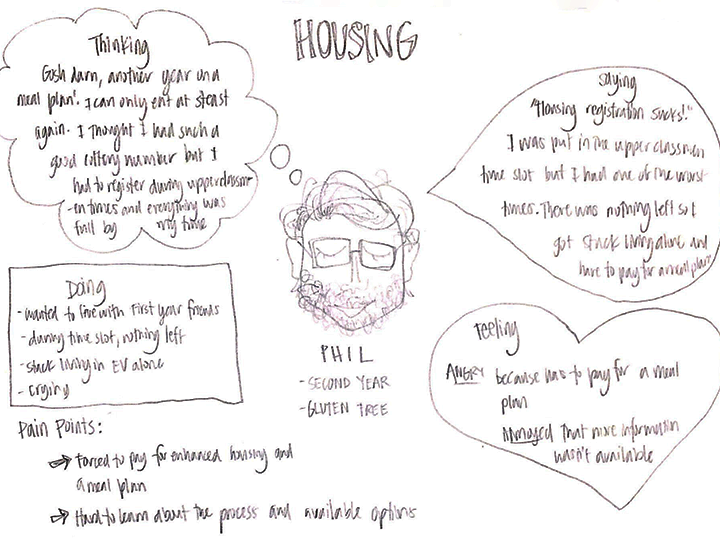 HOUSING
Thinking
Gosh darn, another year on a
meal plan! I can only eat at steast
again. I thought I had such a
good lottery number but I
had to register during upperclassm-
-en times and everything was
full by my time
Saying
"Housing registration sucks!"
I was put in the upper classmen
time slot but I had one of the worst
times. There was nothing left so I
got stuck living alone and
have to pay for a meal plan"
Doing
- wanted to live with First year friends
- during time slot, nothing left
- stuck living in EV alone
- crying
PHIL
- SECOND YEAR
- GLUTEN TREE
Feeling
ANGRY because has to pay for a meal
plan
Annoyed that more information
wasn't available
Pain Points:
Forced to pay for enhanced housing and
a meal plan
Hard to learn about the process and available options